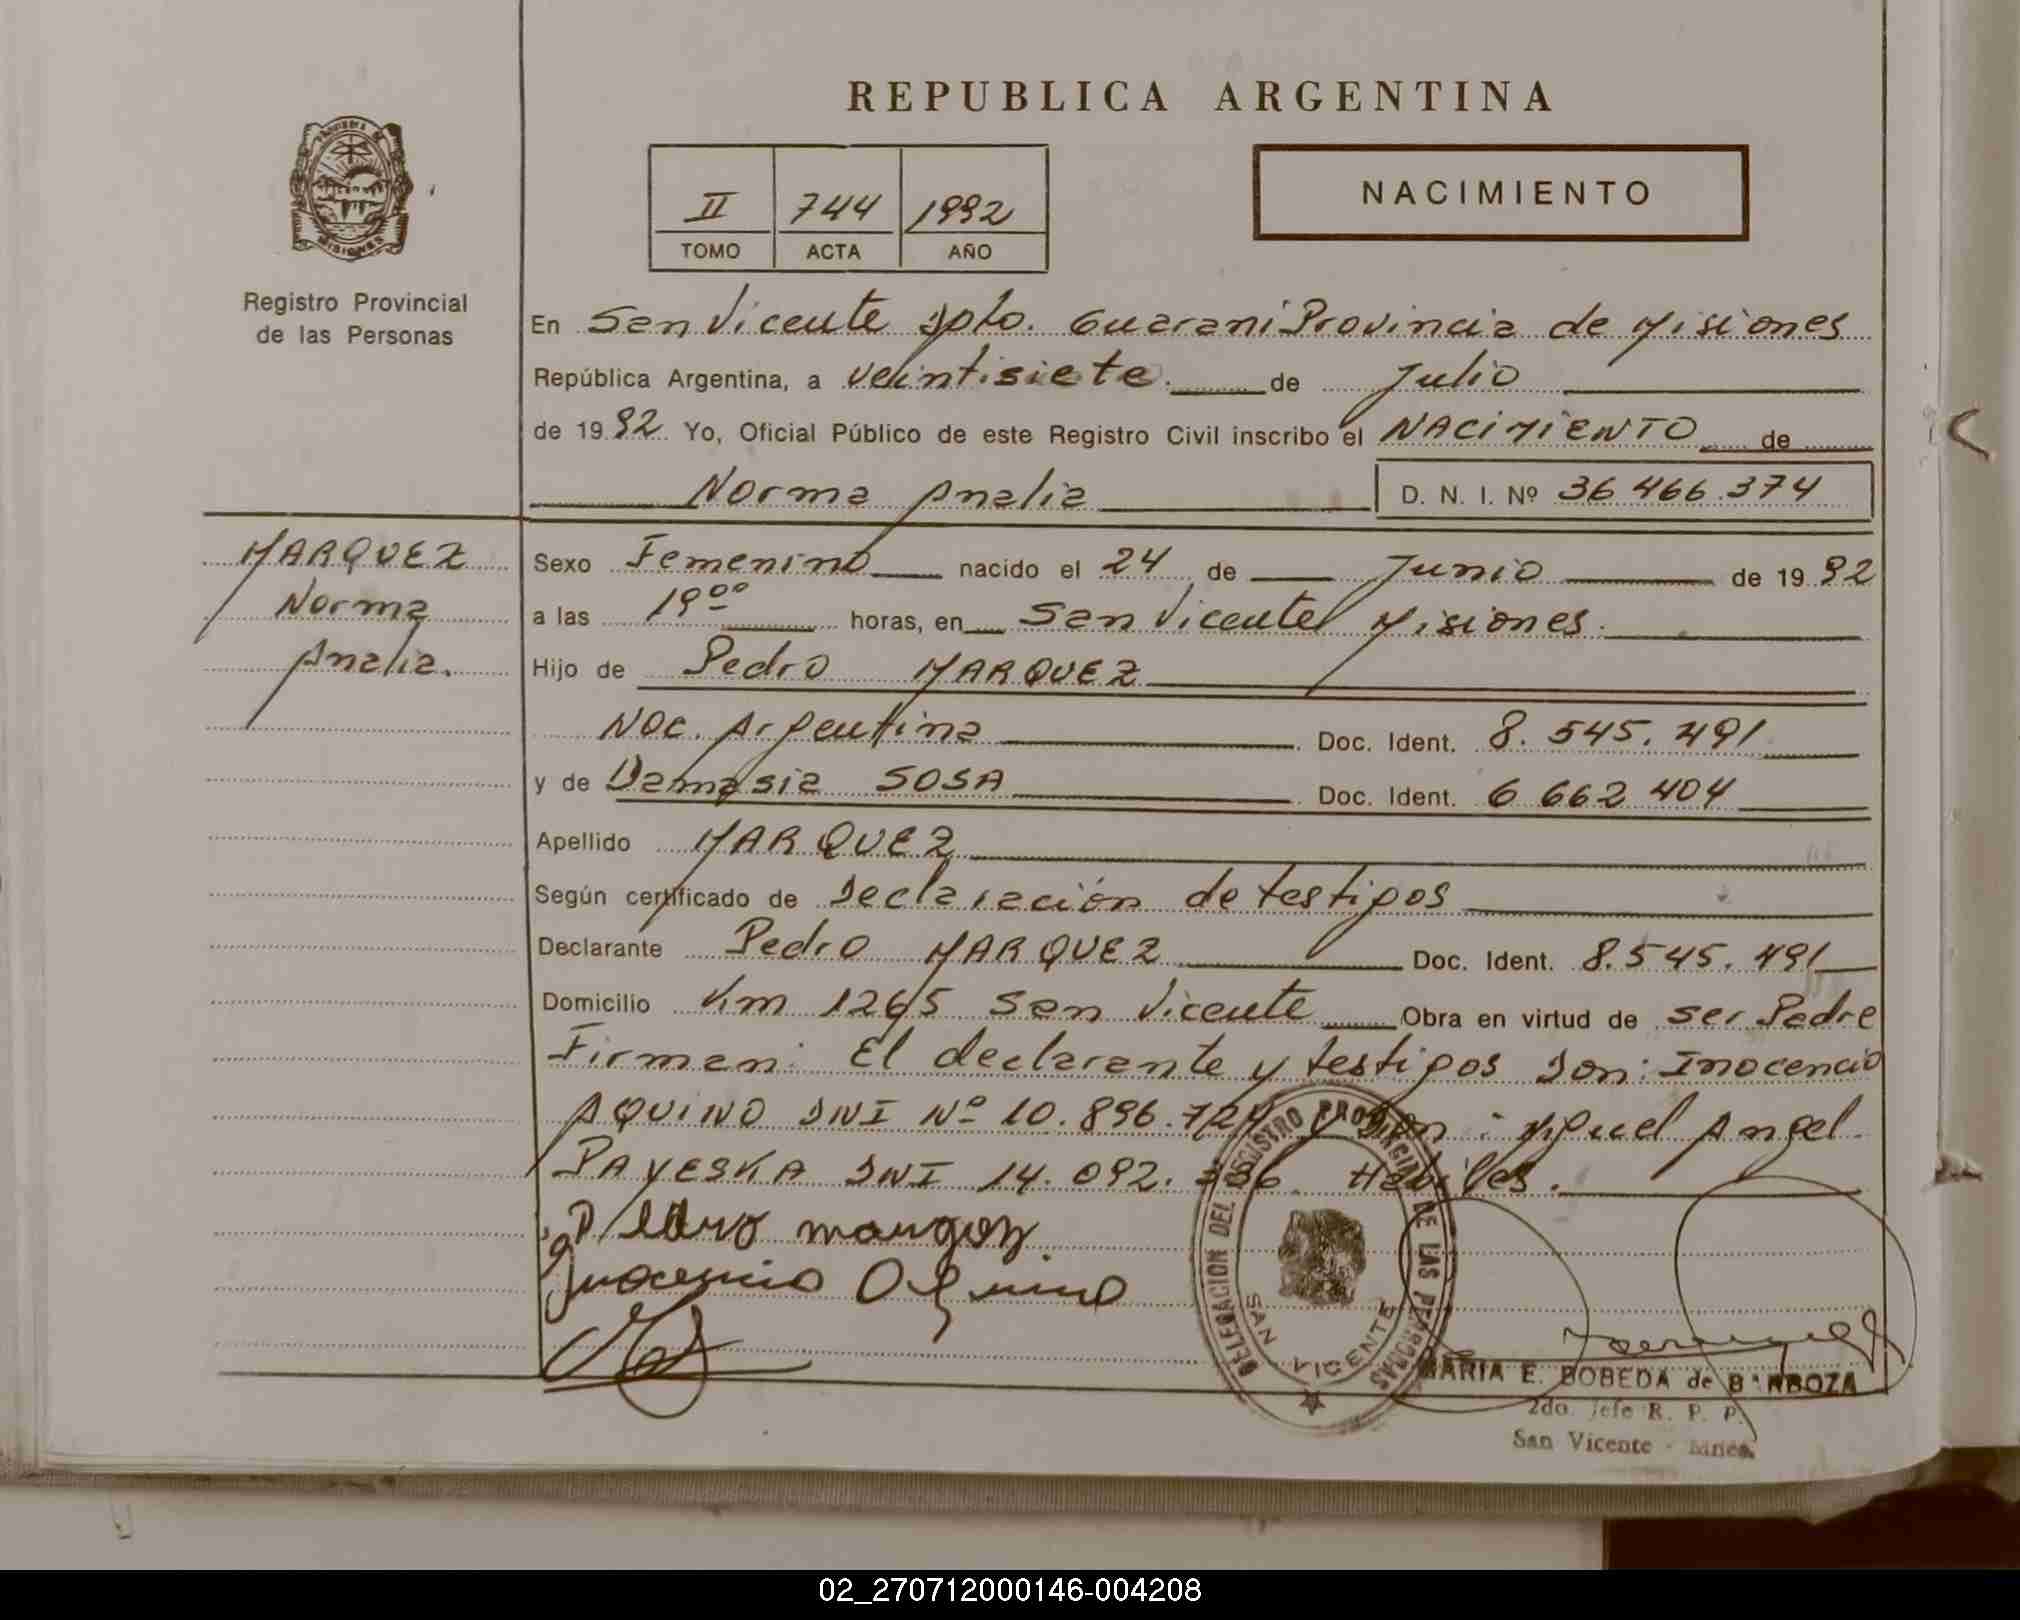 REPUBLICA ARGENTINA
II 744 1992
TOMO ACTA AÑO
NACIMIENTO
PROVINCIA DE
MISIONES
Registro Provincial
de las Personas
En San Vicente Dpto. Guaraní Provincia de Misiones
República Argentina, a veintisiete. de Julio
de 1992 Yo, Oficial Público de este Registro Civil inscribo el NACIMIENTO de
Norma Analia D. N. I. Nº 36 466.374
MARQUEZ
Norma
Analia.
Sexo Femenino nacido el 24 de Junio de 1992
a las 19 00 horas, en San Vicente Misiones.
Hijo de Pedro MARQUEZ
Nac. Argentina Doc. Ident. 8.545.491
y de Damasia SOSA Doc. Ident. 6 662 404
Apellido MARQUEZ
Según certificado de Declaración de testigos
Declarante Pedro MARQUEZ Doc. Ident. 8.545.491
Domicilio Km 1265 San Vicente Obra en virtud de ser Padre
Firman: El declarante y testigos Don: Inocencio
AQUINO DNI Nº 10.896.724 y Don: Miguel Angel
PAYESKA DNI 14.092.336 Habiles.
Pedro marquez
Inocencio Aquino
DELEGACION DEL REGISTRO PROVINCIAL DE LAS PERSONAS
SAN VICENTE
MARIA E. BOBEDA de BARBOZA
2do. Jefe R. P. P.
San Vicente - Mnes.
02_270712000146-004208